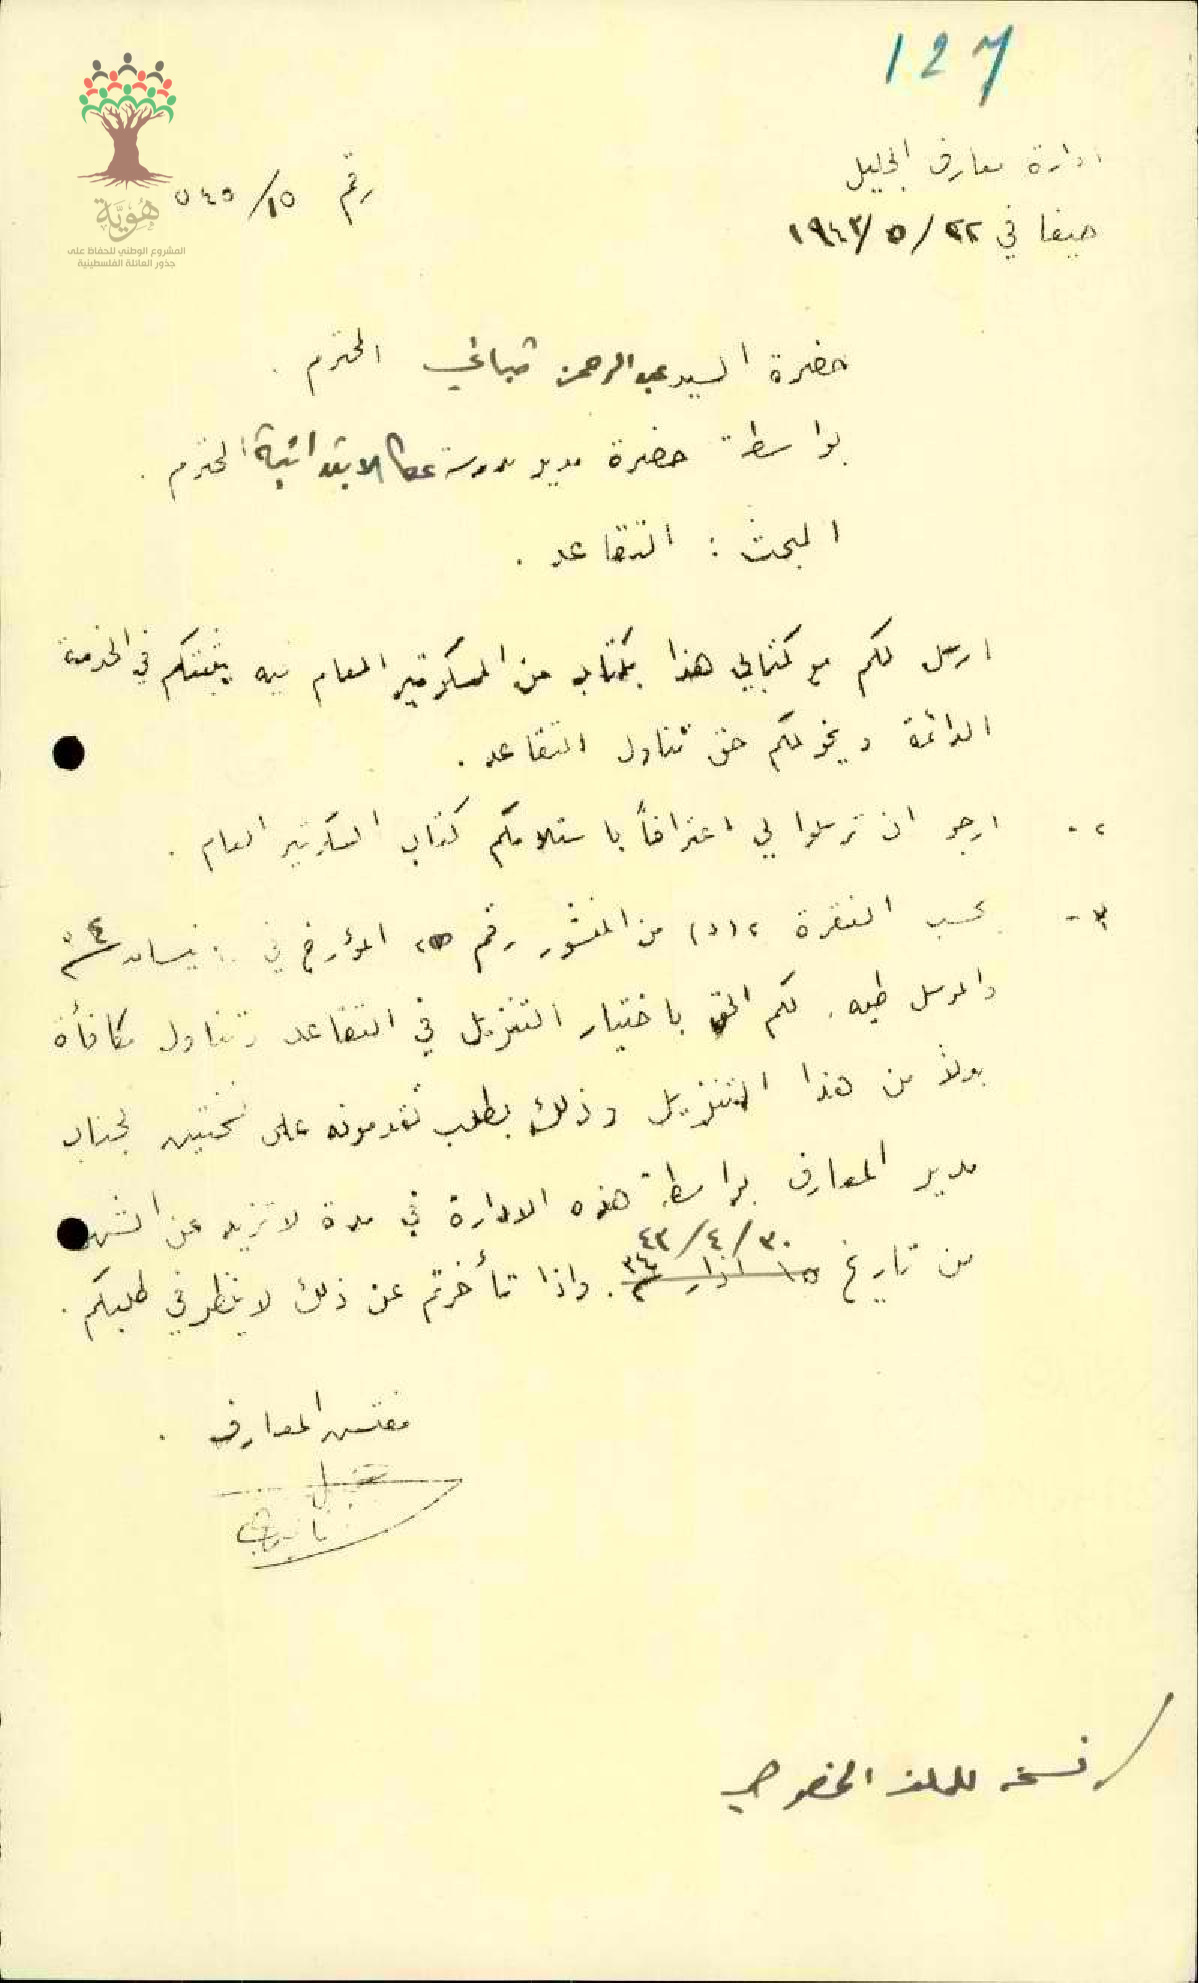 127
ادارة معارف الجليل
رقم ١٥/ ٥٤٥
حيفا في ٢٢/ ٥/ ١٩٤٣
هُويَّة
المشروع الوطني للحفاظ على
جذور العائلة الفلسطينية
حضرة السيد عبد الرحمن المحترم .
بواسطة حضرة مدير مدرسة عكا الابتدائية المحترم .
المبحث : التقاعد .
ارسل لكم مع كتابي هذا كتاب من السكرتير العام فيه يثبتكم في الخدمة
الدائمة ويخولكم حق تناول التقاعد .
٢- ارجو ان ترسلوا لي اعترافاً باستلامكم كتاب السكرتير العام .
٣- بحسب الفقرة ٢ (د) من المنشور رقم المؤرخ في نيسان
والمرسل طيه . لكم الحق باختيار التنزيل في التقاعد وتناول مكافأة
بدلاً من هذا التنزيل وذلك بطلب تقدمونه على نسختين لجناب
مدير المعارف بواسطة هذه الادارة في مدة لا تزيد عن الشهر
٣٠/ ٤/ ٤٣
من تاريخ ١٥ اذار . واذا تأخرتم عن ذلك لا ينظر في طلبكم .
مفتش المعارف .
نسخة للملف الخصوصي